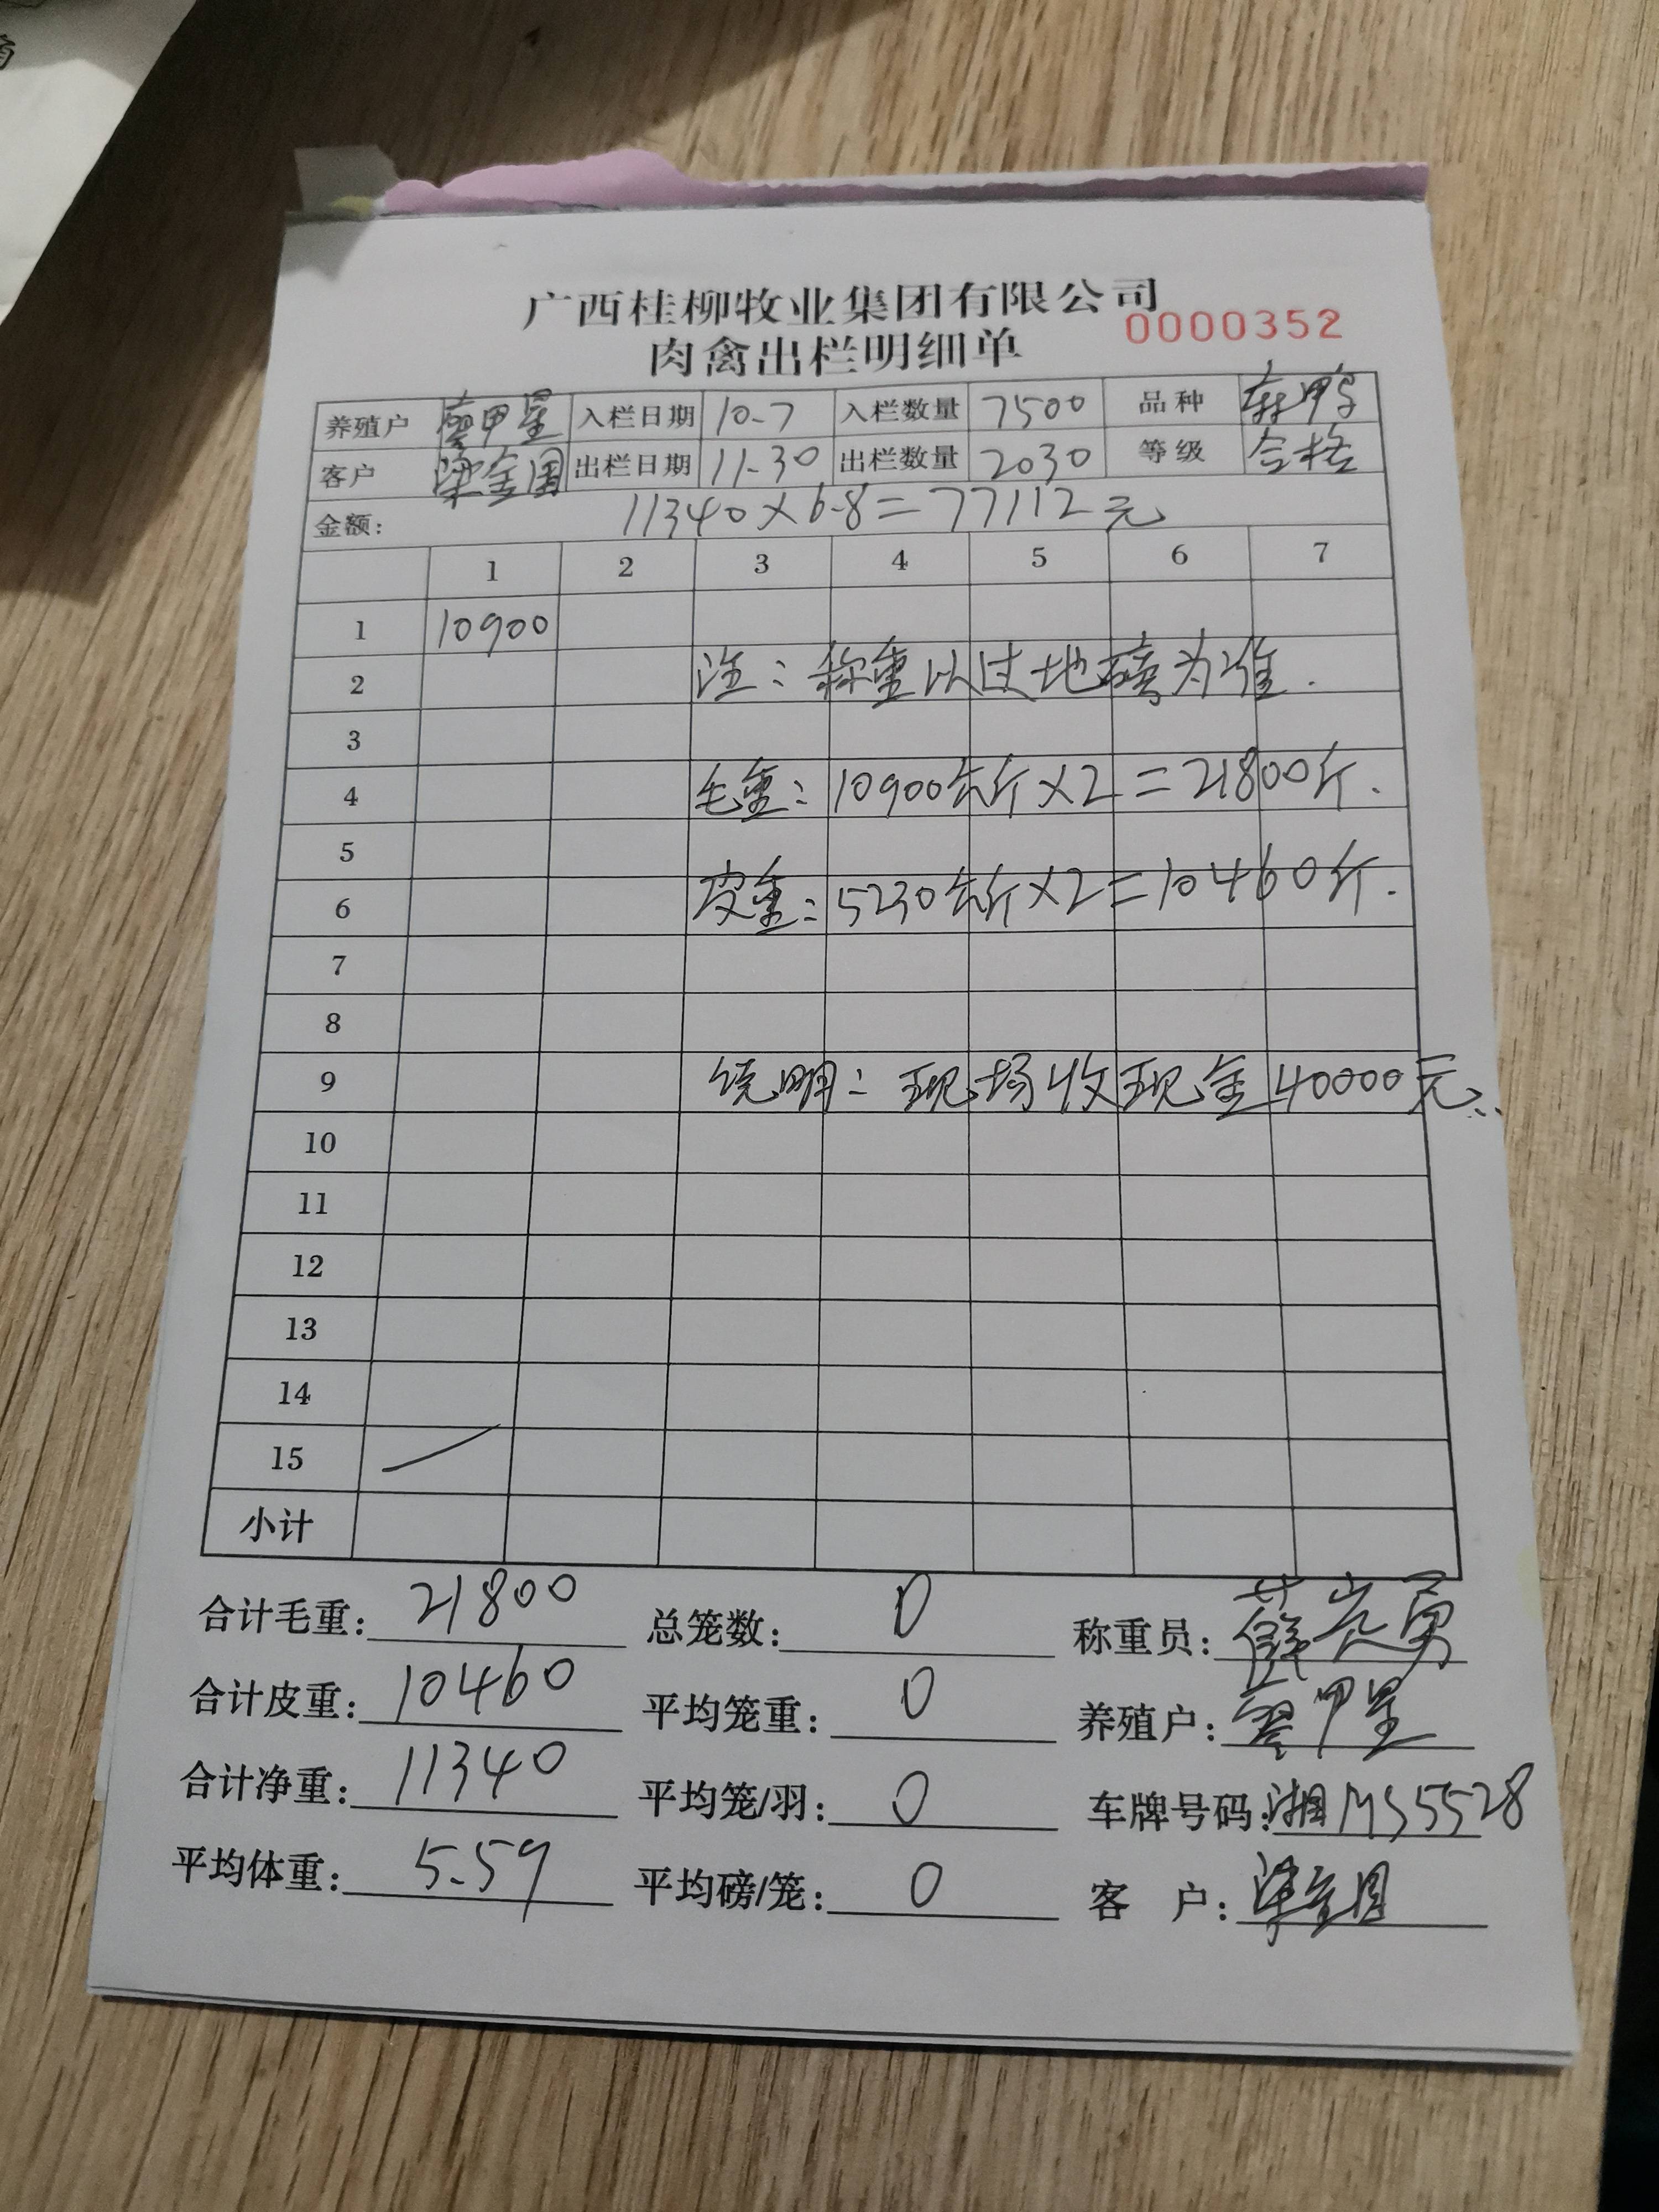 广西桂柳牧业集团有限公司
0000352
肉禽出栏明细单
养殖户 廖甲星 入栏日期 10-7 入栏数量 7500 品种 麻鸭
客户 梁金国 出栏日期 11-30 出栏数量 2030 等级 合格
金额: 11340×6.8=77112元
1 2 3 4 5 6 7
1 10900
2 注:称重以过地磅为准.
3
4 毛重:10900公斤×2=21800斤.
5
6 皮重:5230公斤×2=10460斤.
7
8
9 说明:现场收现金40000元.
10
11
12
13
14
15
小计
合计毛重: 21800 总笼数: 0 称重员:
合计皮重: 10460 平均笼重: 0 养殖户: 廖甲星
合计净重: 11340 平均笼/羽: 0 车牌号码: 湘MS5528
平均体重: 5.59 平均磅/笼: 0 客 户: 梁金国